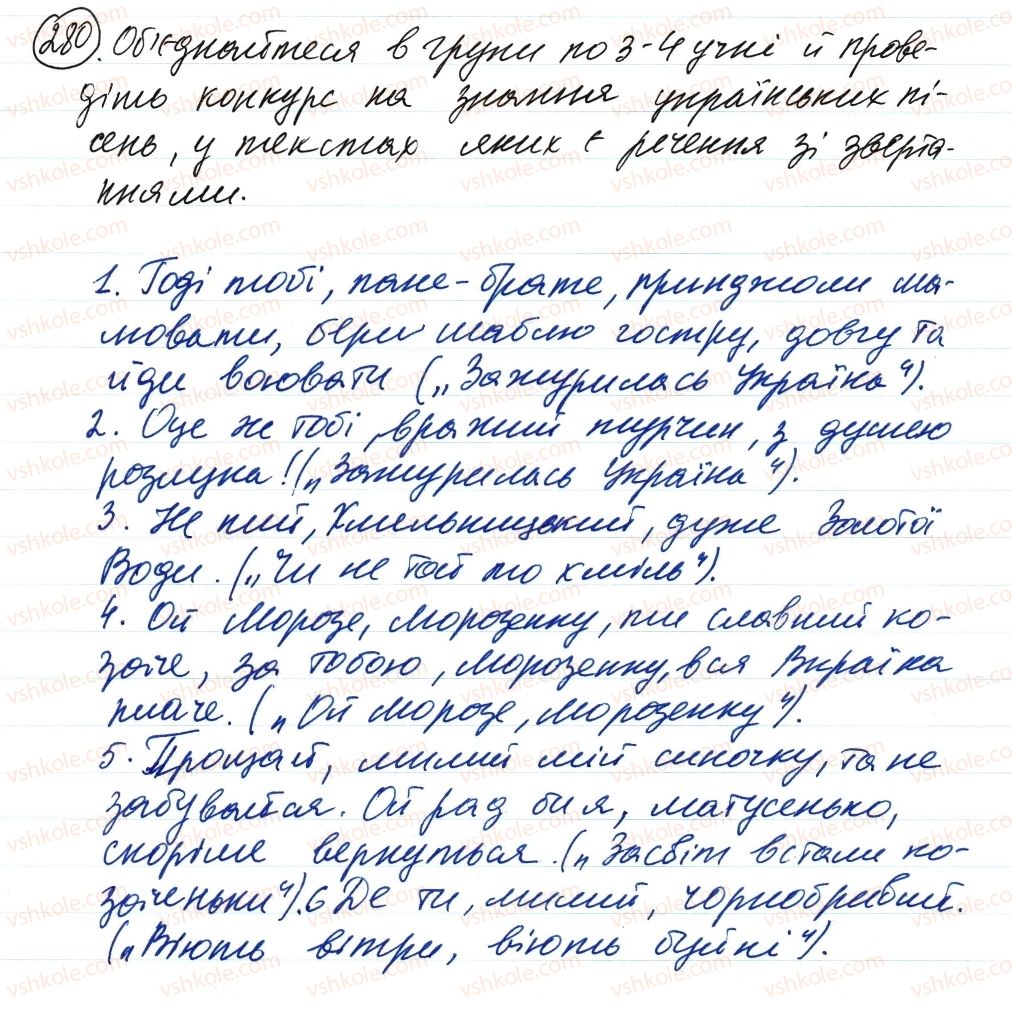 280. Об'єднайтеся в групи по 3-4 учні й прове-
діть конкурс на знання українських пі-
сень, у текстах яких є речення зі зверта-
ннями.
1. Годі тобі, пане-брате, принджоли ма-
лювати, бери шаблю гостру, довгу та
йди воювати („Зажурилась Україна").
2. Оце ж тобі, вражий турчин, з душею
розлука! („Зажурилась Україна").
3. Не пий, Хмельницький, дуже Золотої
Води. („Чи не той то хміль").
4. Ой Морозе, Морозенку, ти славний ко-
заче, за тобою, Морозенку, вся Вкраїна
плаче. („Ой Морозе, Морозенку").
5. Прощай, милий мій синочку, та не
забувайся. Ой рад би я, матусенько,
скоріше вернуться. („Засвіт встали ко-
заченьки"). 6 Де ти, милий, чорнобривий.
(„Віють вітри, віють буйні").
vshkole.com